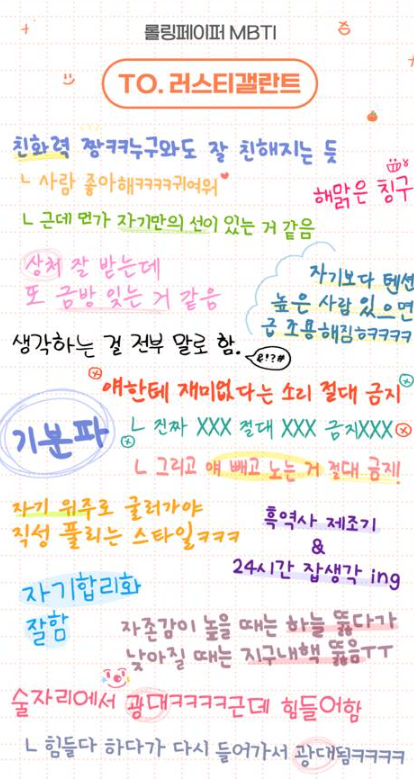 롤링페이퍼 MBTI
TO. 러스티갤란트
친화력 짱ㅋㅋ누구와도 잘 친해지는 듯
ㄴ 사람 좋아해ㅋㅋㅋㅋ귀여워
해맑은 칭구
ㄴ 근데 먼가 자기만의 선이 있는 거 같음
상처 잘 받는데
또 금방 잊는 거 같음
자기보다 텐션
높은 사람 있으면
급 조용해짐ㅎㅋㅋㅋ
생각하는 걸 전부 말로 함.
&!?#
얘한테 재미없다는 소리 절대 금지
기분파
ㄴ 진짜 XXX 절대 XXX 금지XXX
ㄴ 그리고 얘 빼고 노는 거 절대 금지!
자기 위주로 굴러가야
직성 풀리는 스타일ㅋㅋㅋ
흑역사 제조기
&
24시간 잡생각 ing
자기합리화
잘함
자존감이 높을 때는 하늘 뚫다가
낮아질 때는 지구내핵 뚫음ㅜㅜ
술자리에서 광대ㅋㅋㅋㅋ근데 힘들어함
ㄴ 힘들다 하다가 다시 들어가서 광대됨ㅋㅋㅋㅋ